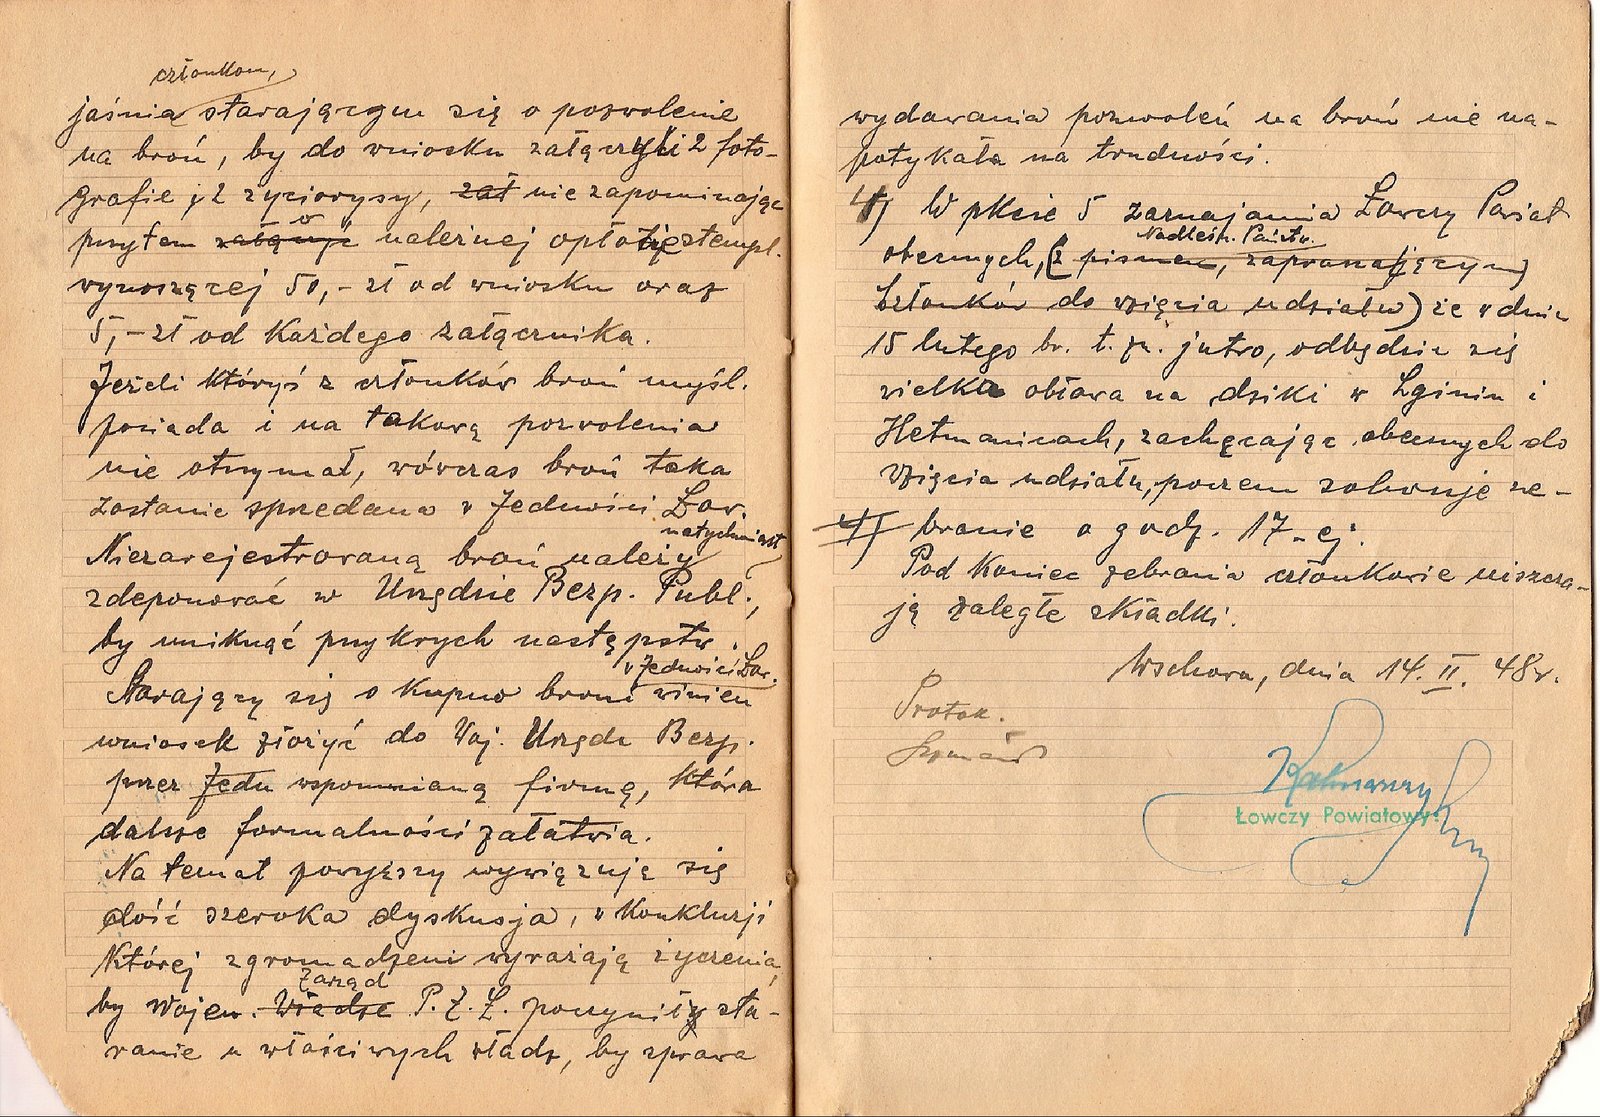 członkom,
jaśnia starającym się o pozwolenie
na broń, by do wniosku załączyli 2 foto-
grafie i 2 życiorysy, zał nie zapominając
przytem załączyć o należnej opłacie stempl.
wynoszącej 50,- zł od wniosku oraz
5,- zł od każdego załącznika.
Jeżeli któryś z członków broń myśl.
posiada i na takową pozwolenia
nie otrzymał, wówczas broń taka
zostanie sprzedana w Jedności Łow.
natychmiast
Niezarejestrowaną broń należy
zdeponować w Urzędzie Bezp. Publ.,
by uniknąć przykrych następstw.
w Jedności Łow.
Starający się o kupno broni winien
wniosek złożyć do Woj. Urzędu Bezp.
przez Jedn wspomnianą firmę, która
dalsze formalności załatwia.
Na temat powyższy wywiązuje się
dość szeroka dyskusja, w konkluzji
której zgromadzeni wyrażają życzenia,
Zarząd
by Wojew. Władze P.Z.Ł. poczyniły sta-
ranie u właściwych władz, by sprawa
wydawania pozwoleń na broń nie na-
potykała na trudności.
4) W pkcie 5 zaznajamia Łowczy Powiat
Nadleśn. Państw.
obecnych, (z pismem, zapraszającym)
członków do wzięcia udziału) że w dniu
15 lutego br. t.zn. jutro, odbędzie się
wielka obława na dziki w Lginiu i
Hetmanicach, zachęcając obecnych do
wzięcia udziału, poczem zakańcza ze-
branie o godz. 17-ej.
Pod koniec zebrania członkowie uiszcza-
ją zaległe składki.
Wschowa, dnia 14.II.48r.
Protok.
Łowczy Powiatowy